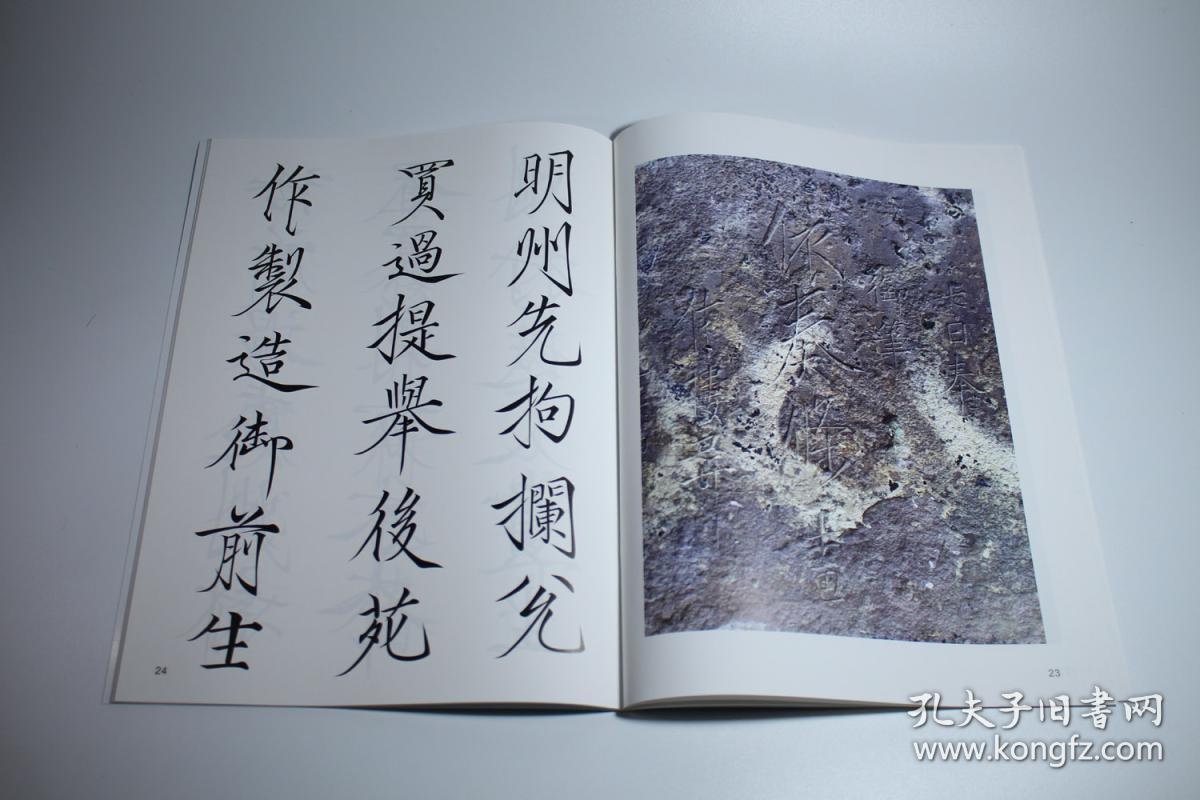 明州先拘攔兊
買過提舉後苑
作製造御前生
24
依奏
23
孔夫子旧書网
www.kongfz.com